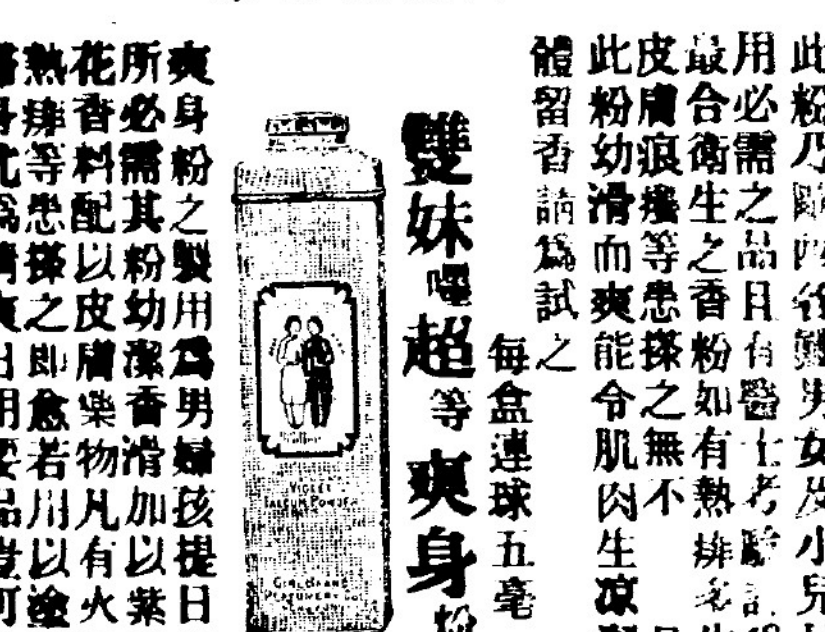 此粉乃歐西各
男女及小兒
用必需之品且有醫士考驗
最合衛生之香粉如有熱痱
皮膚痕癢等患搽之無不
此粉幼滑而爽能令肌肉生凉
體留香請為試之
每盒連球五毫
雙妹嚜超等爽身粉
VIOLET
TALCUM POWDER
GIRL BRAND
PERFUMERY CO.
爽身粉之製用為男婦孩提日
所必需其粉幼潔香滑加以紫
花香料配以皮膚柴物凡有火
熱痱等患搽之即愈若用以塗
身尤為清爽日用要品豈可